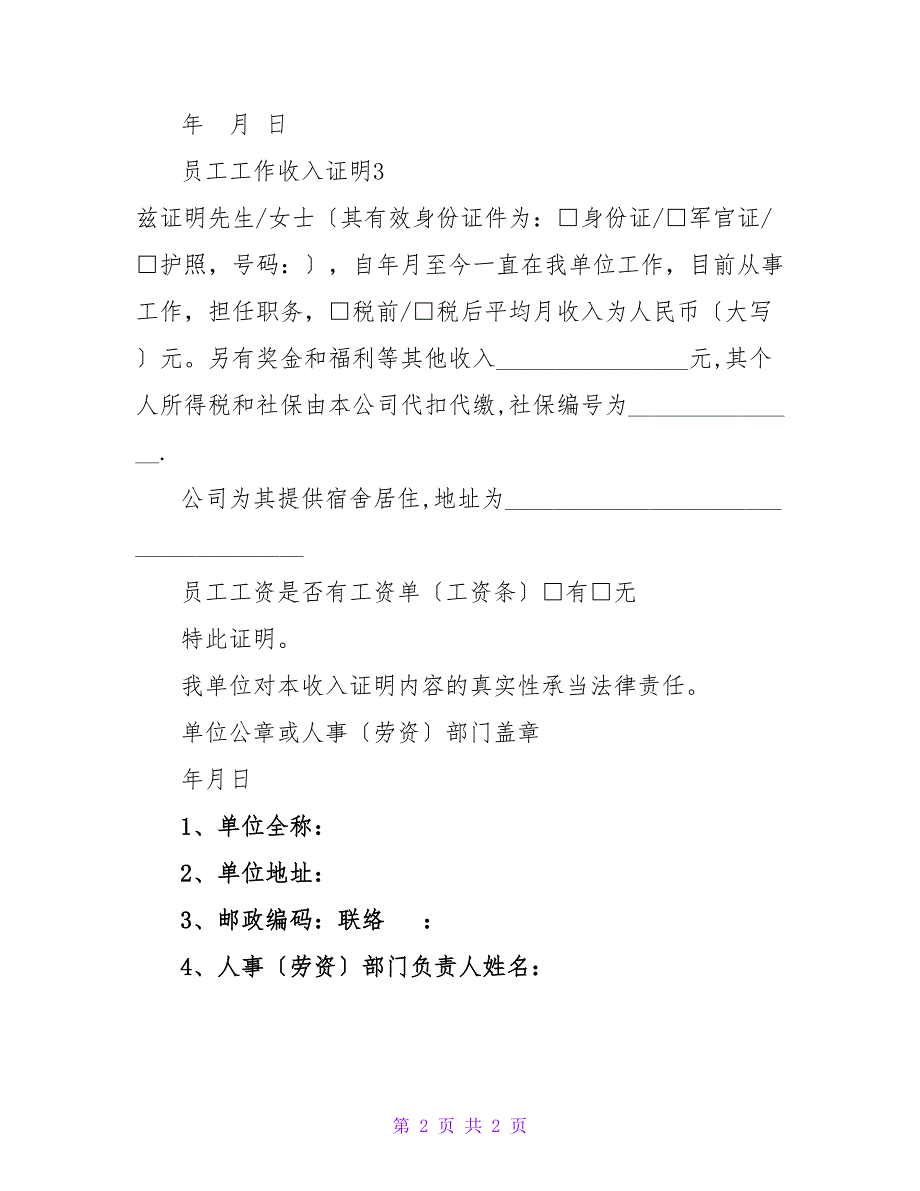 年  月 日
员工工作收入证明3
兹证明先生/女士〔其有效身份证件为：□身份证/□军官证/
□护照，号码：〕，自年月至今一直在我单位工作，目前从事
工作，担任职务，□税前/□税后平均月收入为人民币〔大写
〕元。另有奖金和福利等其他收入________________元,其个
人所得税和社保由本公司代扣代缴,社保编号为_____________
__.
公司为其提供宿舍居住,地址为_______________________
______________
员工工资是否有工资单〔工资条〕□有□无
特此证明。
我单位对本收入证明内容的真实性承当法律责任。
单位公章或人事〔劳资〕部门盖章
年月日
1、单位全称：
2、单位地址：
3、邮政编码：联络  ：
4、人事〔劳资〕部门负责人姓名：
第 2 页 共 2 页